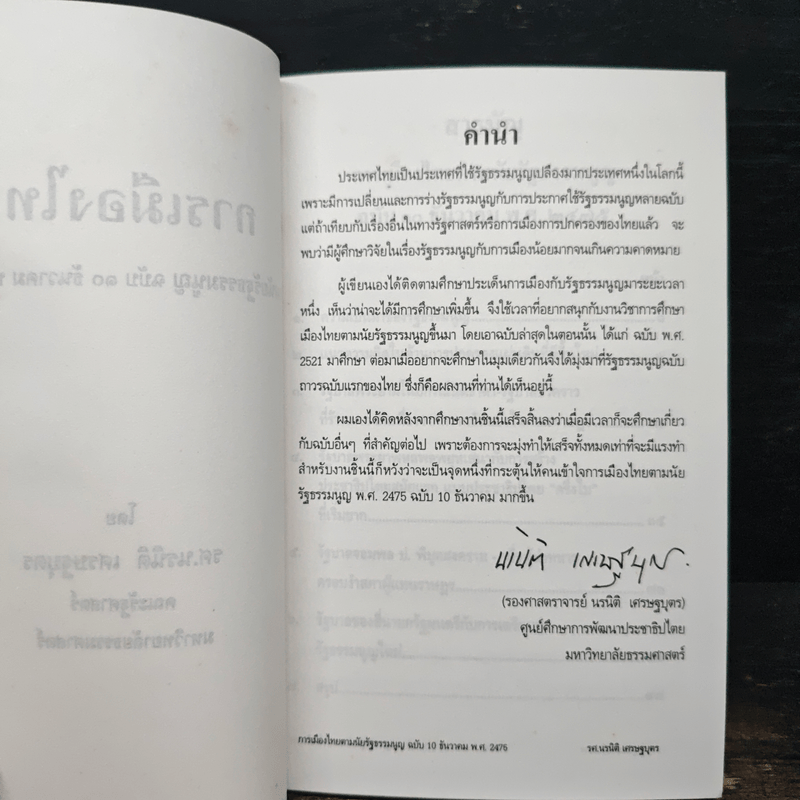 คำนำ
ประเทศไทยเป็นประเทศที่ใช้รัฐธรรมนูญเปลืองมากประเทศหนึ่งในโลกนี้
เพราะมีการเปลี่ยนและการร่างรัฐธรรมนูญกับการประกาศใช้รัฐธรรมนูญหลายฉบับ
แต่ถ้าเทียบกับเรื่องอื่นในทางรัฐศาสตร์หรือการเมืองการปกครองของไทยแล้ว จะ
พบว่ามีผู้ศึกษาวิจัยในเรื่องรัฐธรรมนูญกับการเมืองน้อยมากจนเกินความคาดหมาย
ผู้เขียนเองได้ติดตามศึกษาประเด็นการเมืองกับรัฐธรรมนูญมาระยะเวลา
หนึ่ง เห็นว่าน่าจะได้มีการศึกษาเพิ่มขึ้น จึงใช้เวลาที่อยากสนุกกับงานวิชาการศึกษา
เมืองไทยตามนัยรัฐธรรมนูญขึ้นมา โดยเอาฉบับล่าสุดในตอนนั้น ได้แก่ ฉบับ พ.ศ.
2521 มาศึกษา ต่อมาเมื่ออยากจะศึกษาในมุมเดียวกันจึงได้มุ่งมาที่รัฐธรรมนูญฉบับ
ถาวรฉบับแรกของไทย ซึ่งก็คือผลงานที่ท่านได้เห็นอยู่นี้
ผมเองได้คิดหลังจากศึกษางานชิ้นนี้เสร็จสิ้นลงว่าเมื่อมีเวลาก็จะศึกษาเกี่ยว
กับฉบับอื่นๆ ที่สำคัญต่อไป เพราะต้องการจะมุ่งทำให้เสร็จทั้งหมดเท่าที่จะมีแรงทำ
สำหรับงานชิ้นนี้ก็หวังว่าจะเป็นจุดหนึ่งที่กระตุ้นให้คนเข้าใจการเมืองไทยตามนัย
รัฐธรรมนูญ พ.ศ. 2475 ฉบับ 10 ธันวาคม มากขึ้น
นรนิติ เศรษฐบุตร
(รองศาสตราจารย์ นรนิติ เศรษฐบุตร)
ศูนย์ศึกษาการพัฒนาประชาธิปไตย
มหาวิทยาลัยธรรมศาสตร์
การเมืองไทยตามนัยรัฐธรรมนูญ ฉบับ 10 ธันวาคม พ.ศ. 2475 รศ.นรนิติ เศรษฐบุตร